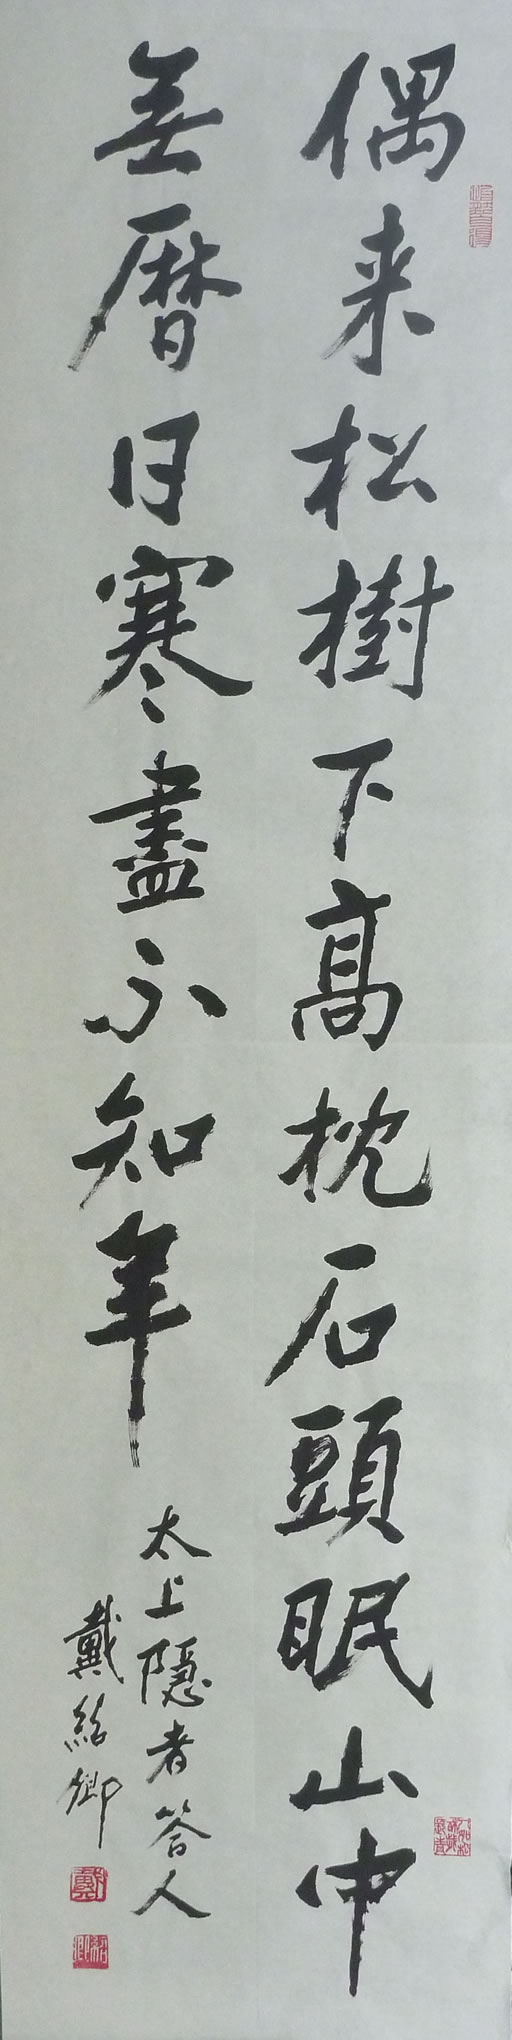 偶来松樹下高枕石頭眠山中
無曆日寒盡不知年
太上隱者答人
戴紹卿
紹卿